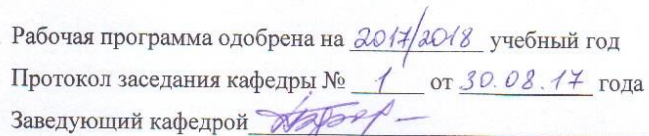 Рабочая программа одобрена на 2017/2018 учебный год
Протокол заседания кафедры № 1 от 30.08.17 года
Заведующий кафедрой